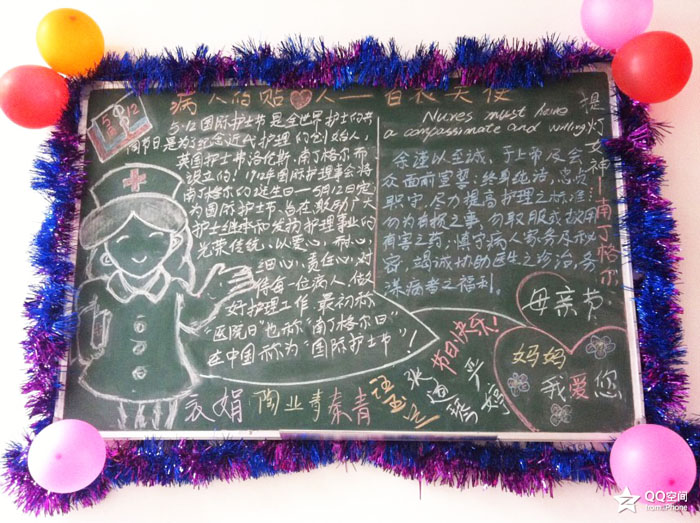 病人的贴心人—白衣天使
5.12
5·12国际护士节是全世界护士的共
同节日是为了纪念近代护理的创始人,
英国护士弗洛伦斯·南丁格尔而
设立的!1912年国际护理事会将
南丁格尔的诞生日—5月12日定
为国际护士节,旨在激励广大
护士继承和发扬护理事业的
光荣传统,以爱心,耐心,
细心,责任心,对
待每一位病人,做
好护理工作.最初称
"医院日"也称"南丁格尔日"
在中国称为"国际护士节"!
Nurses must have
a compassimate and willing
余谨以至诚,于上帝及会
众面前宣誓:终身纯洁,忠贞
职守,尽力提高护理之标准;
勿为有损之事,勿取服或故用
有害之药;慎守病人家务及秘
密,竭诚协助医生之诊治,务
谋病者之福利。
提灯女神—南丁格尔
母亲节
妈妈
我爱您
节日快乐!
袁娟 陶业青 秦青